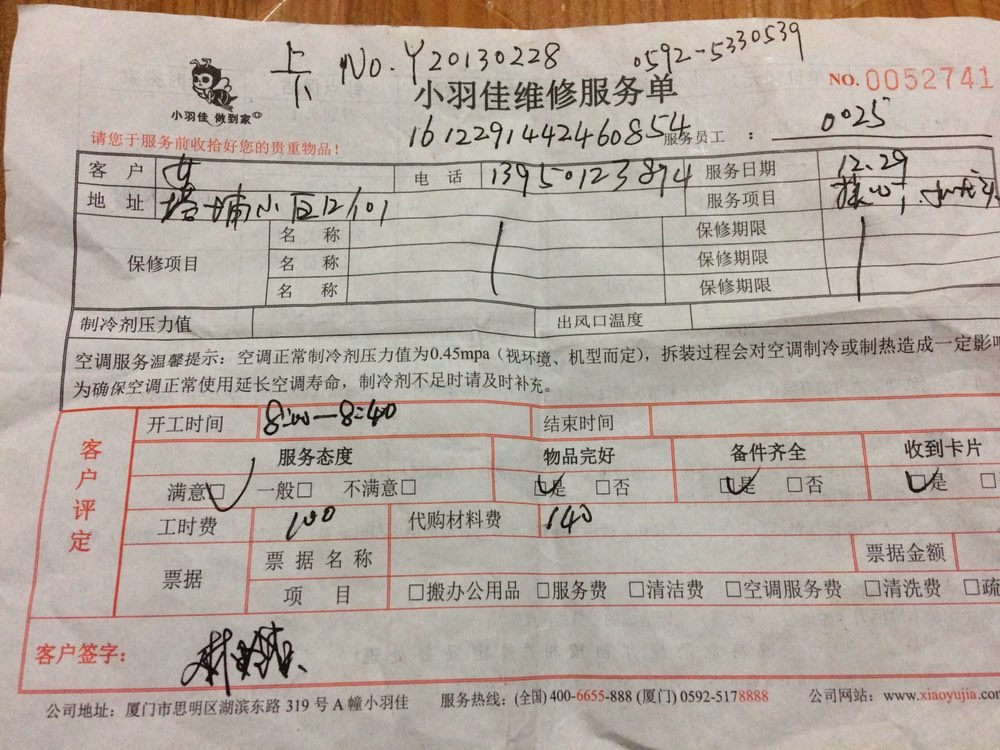 上下 No.Y20130228 0592-5330539
小羽佳 做到家
小羽佳维修服务单 NO.0052741
1612291442460854 服务员工： 0025
请您于服务前收拾好您的贵重物品！
客户 电话 13950123894 服务日期 12.29
地址 塔埔小区12/101 服务项目
保修项目 名称 保修期限
名称 保修期限
名称 保修期限
制冷剂压力值 出风口温度
空调服务温馨提示：空调正常制冷剂压力值为0.45mpa（视环境、机型而定），拆装过程会对空调制冷或制热造成一定影响
为确保空调正常使用延长空调寿命，制冷剂不足时请及时补充。
客户评定
开工时间 8:00—8:40 结束时间
服务态度 物品完好 备件齐全 收到卡片
满意□ 一般□ 不满意□ □是 □否 □是 □否 □是 □
工时费 100 代购材料费 140
票据 票据名称 票据金额
项目 □搬办公用品 □服务费 □清洁费 □空调服务费 □清洗费 □疏
客户签字：
公司地址：厦门市思明区湖滨东路 319 号 A 幢小羽佳 服务热线：(全国) 400-6655-888 (厦门) 0592-5178888 公司网站：www.xiaoyujia.com